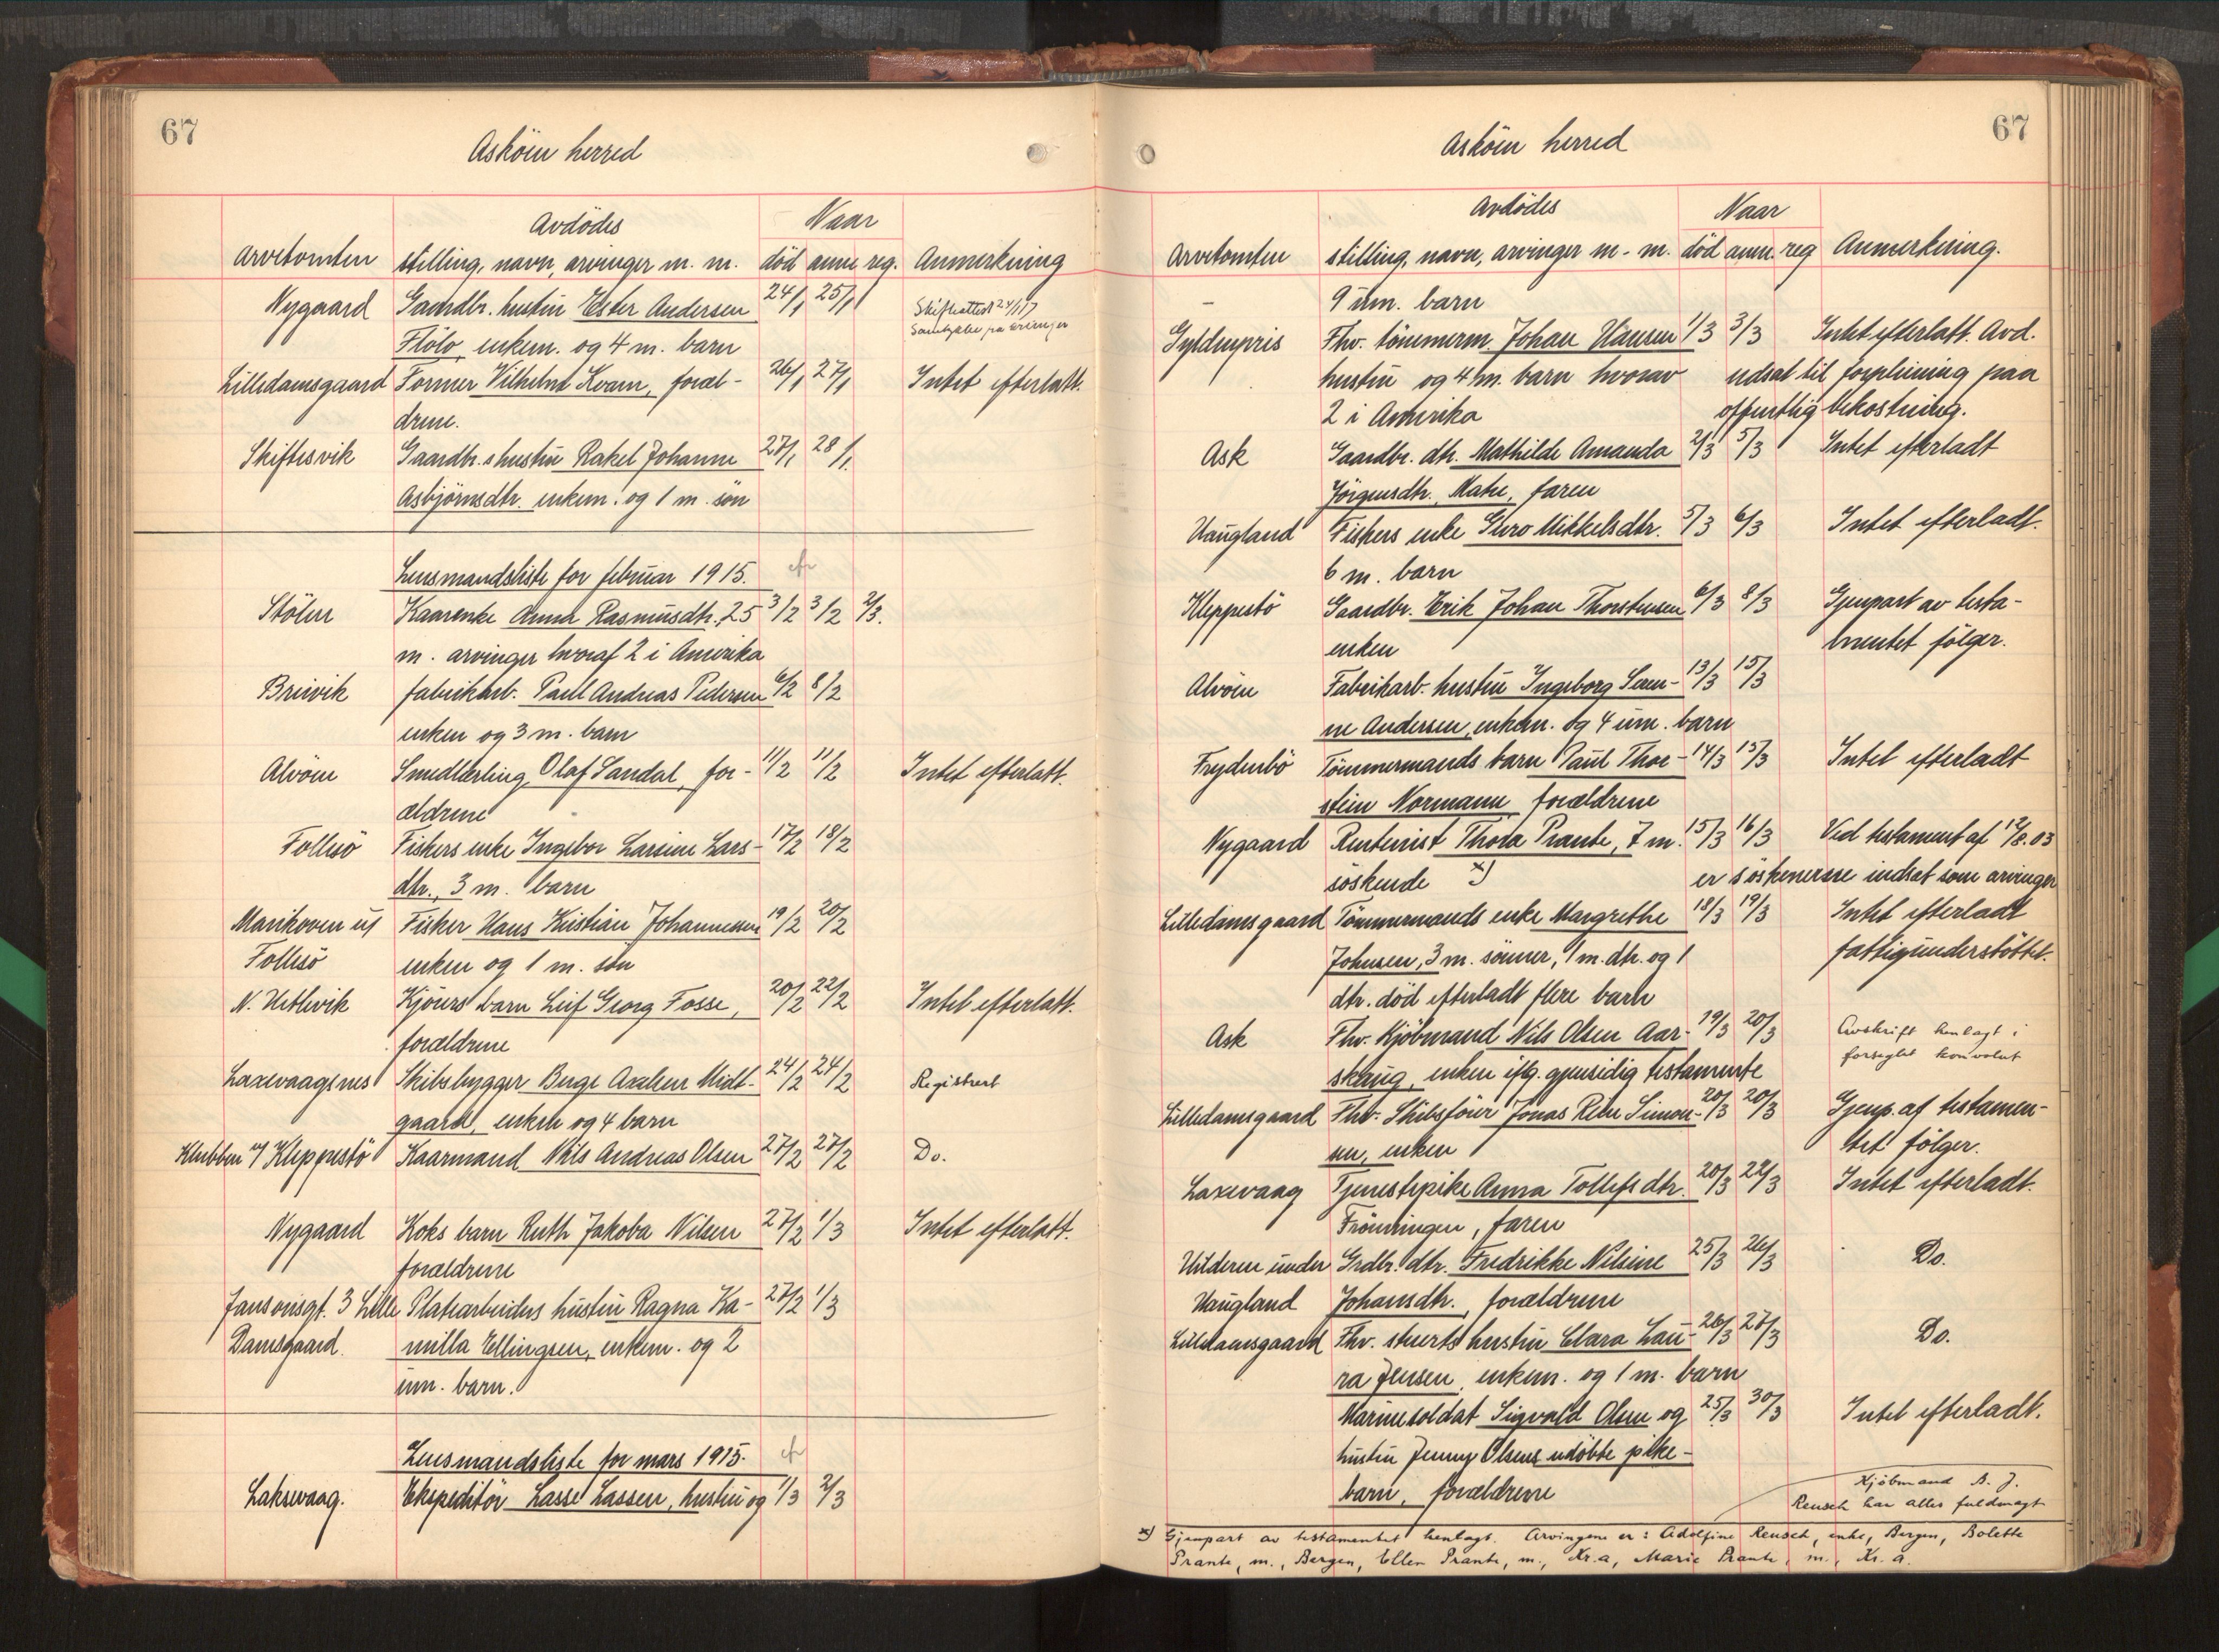 67
Asköen herred
Avdödes
Naar
Arvetomten stilling, navn, arvinger m. m. död anm. reg. Anmerkning
Nygaard Gaardbr. hustru Ester Andersen 24/1 25/1 Skifteattest 24/1 17
Flölo, enkem. og 4 m. barn Samtykke fra arvinger
Lilledamsgaard Former Vilhelm Kvam, foræl- 26/1 27/1 Intet efterlatt.
drene.
Skiftesvik Gaardbr.s hustru Rakel Johanne 27/1 28/1
Asbjörnsdtr. enkem. og 1 m. sön
Lensmandsliste for februar 1915.
Stölen Kaarenke Anna Rasmusdtr., 25 3/2 3/2 2/3.
m. arvinger hvoraf 2 i Amerika
Breivik fabrikarb. Paul Andreas Pedersen 6/2 8/2
enken og 3 m. barn
Alvöen Smedlærling Olaf Sandal, for- 11/2 11/2 Intet efterlatt.
ældrene
Follesö Fiskers enke Ingebor Larsine Lars- 17/2 18/2
dtr., 3 m. barn
Marikoven u/ Fisker Hans Kristian Johannessen 19/2 20/2
Follesö enken og 1 m. sön
N. Hetlevik Kjöers barn Leif Georg Fosse, 20/2 22/2 Intet efterlatt.
forældrene
Laxevaagsnes Skibsbygger Berge Axelsen Midt- 24/2 24/2 Registrert
gaard, enken og 4 barn
Klubben u/ Kleppestö Kaarmand Nils Andreas Olsen 27/2 27/2 Do.
Nygaard Koks barn Ruth Jakoba Nilsen 27/2 1/3 Intet efterlatt.
forældrene
Jansonsgt. 3 Lille Platearbeiders hustru Ragna Ka- 27/2 1/3
Damsgaard. milla Ellingsen, enkem. og 2
um. barn.
Lensmandsliste for mars 1915.
Laksevaag. Ekspeditör Lasse Lassen, hustru og 1/3 2/3
67
Asköen herred
Avdödes
Naar
Arvetomten stilling, navn, arvinger m. m. död anm. reg Anmerkning.
– 9 um. barn
Gyldenpris Fhv. tömmerm. Johan Hansen 1/3 3/3 Intet efterlatt. Avd.
hustru og 4 m. barn hvorav udsat til forpleining paa
2 i Amerika offentlig bekostning.
Ask Gaardbr. dtr. Mathilde Amanda 2/3 5/3 Intet efterladt
Jörgensdtr. Matre, faren
Haugland Fiskers enke Guro Mikkelsdtr. 5/3 6/3 Intet efterladt.
6 m. barn
Kleppestö Gaardbr. Erik Johan Thorstensen 6/3 8/3 Gjenpart av testa-
enken mentet fölger.
Alvöen Fabrikarb. hustru Ingeborg Seren- 13/3 15/3
ne Andersen, enkem. og 4 um. barn
Frydenbö Tömmermands barn Paul Thor- 14/3 15/3 Intet efterladt
stein Normann, forældrene
Nygaard Rentenist Thora Prante, 7 m. 15/3 16/3 Ved testament af 12/8.03
söskende x) er söskenerne indsat som arvinger
Lilledamsgaard Tömmermands enke Margrethe 18/3 19/3 Intet efterladt
Johnsen, 3 m. sönner, 1 m. dtr. og 1 fattigunderstöttet.
dtr. död efterladt flere barn
Ask Fhv. Kjöbmand Nils Olsen Aar- 19/3 20/3 Avskrift henlagt i
skaug, enken iflg. gjensidig testamente forseglet konvolut
Lilledamsgaard Fhv. Skibsförer Jonas Reier Simon- 20/3 20/3 Gjenp. af testamen-
sen, enken tet fölger.
Laxevaag Tjenestepike Anna Tollefsdtr. 20/3 22/3 Intet efterladt.
Frönningen, faren
Hilderen under Grdbr. dtr. Fredrikke Nilsine 25/3 26/3 Do.
Haugland Johansdtr., forældrene
Lilledamsgaard Fhv. stuerts hustru Clara Lau- 26/3 27/3 Do.
ra Jensen, enkem. og 1 m. barn
Marinesoldat Sigvald Olsen og 25/3 30/3 Intet efterladt.
hustru Jenny Olsens udöbte pike-
barn, forældrene
Kjöbmand B. J.
Reusch har alles fuldmagt
x) Gjenpart av testamentet henlagt. Arvingene er: Adolfine Reusch, enke, Bergen, Bolette
Prante, m., Bergen, Ellen Prante, m., Kr.a, Marie Prante, m., Kr. a.